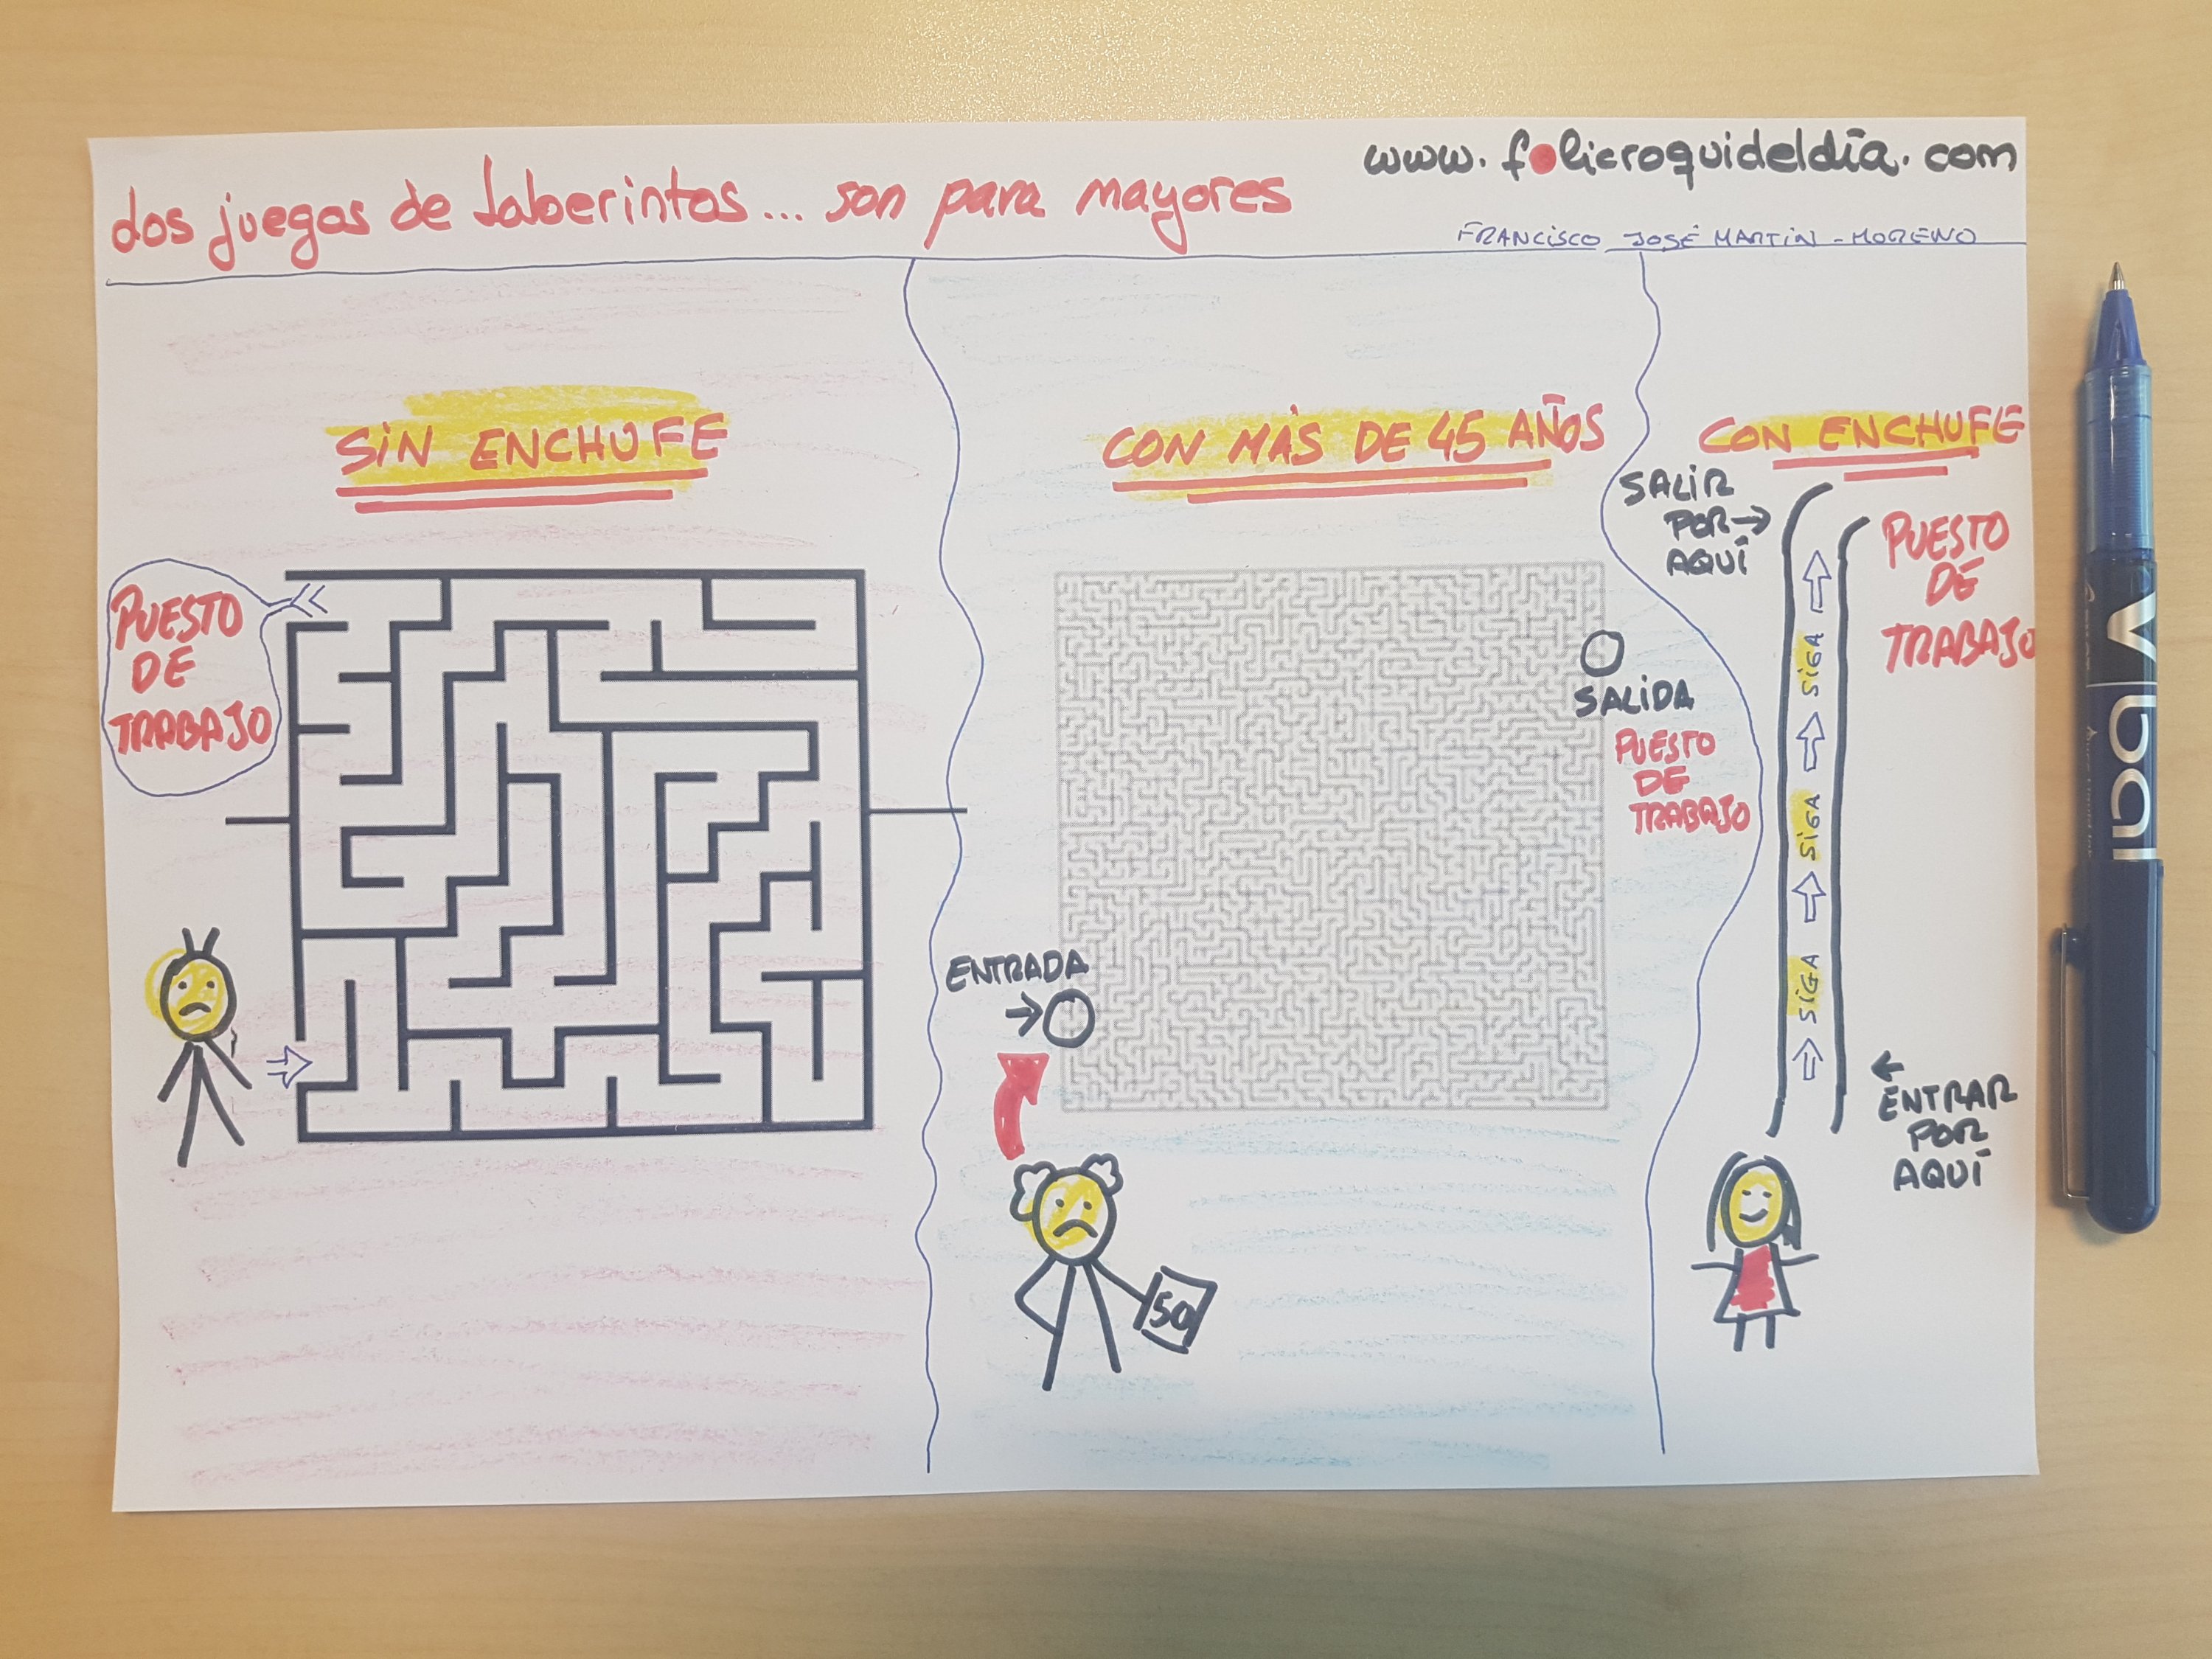 www.folicroquideldía.com
dos juegos de laberintos... son para mayores
FRANCISCO JOSÉ MARTÍN-MORENO
SIN ENCHUFE
PUESTO
DE
TRABAJO
CON MÁS DE 45 AÑOS
SALIDA
PUESTO
DE
TRABAJO
ENTRADA
50
CON ENCHUFE
SALIR
POR
AQUÍ
PUESTO
DE
TRABAJO
SIGA
SIGA
SIGA
ENTRAR
POR
AQUÍ
V ball